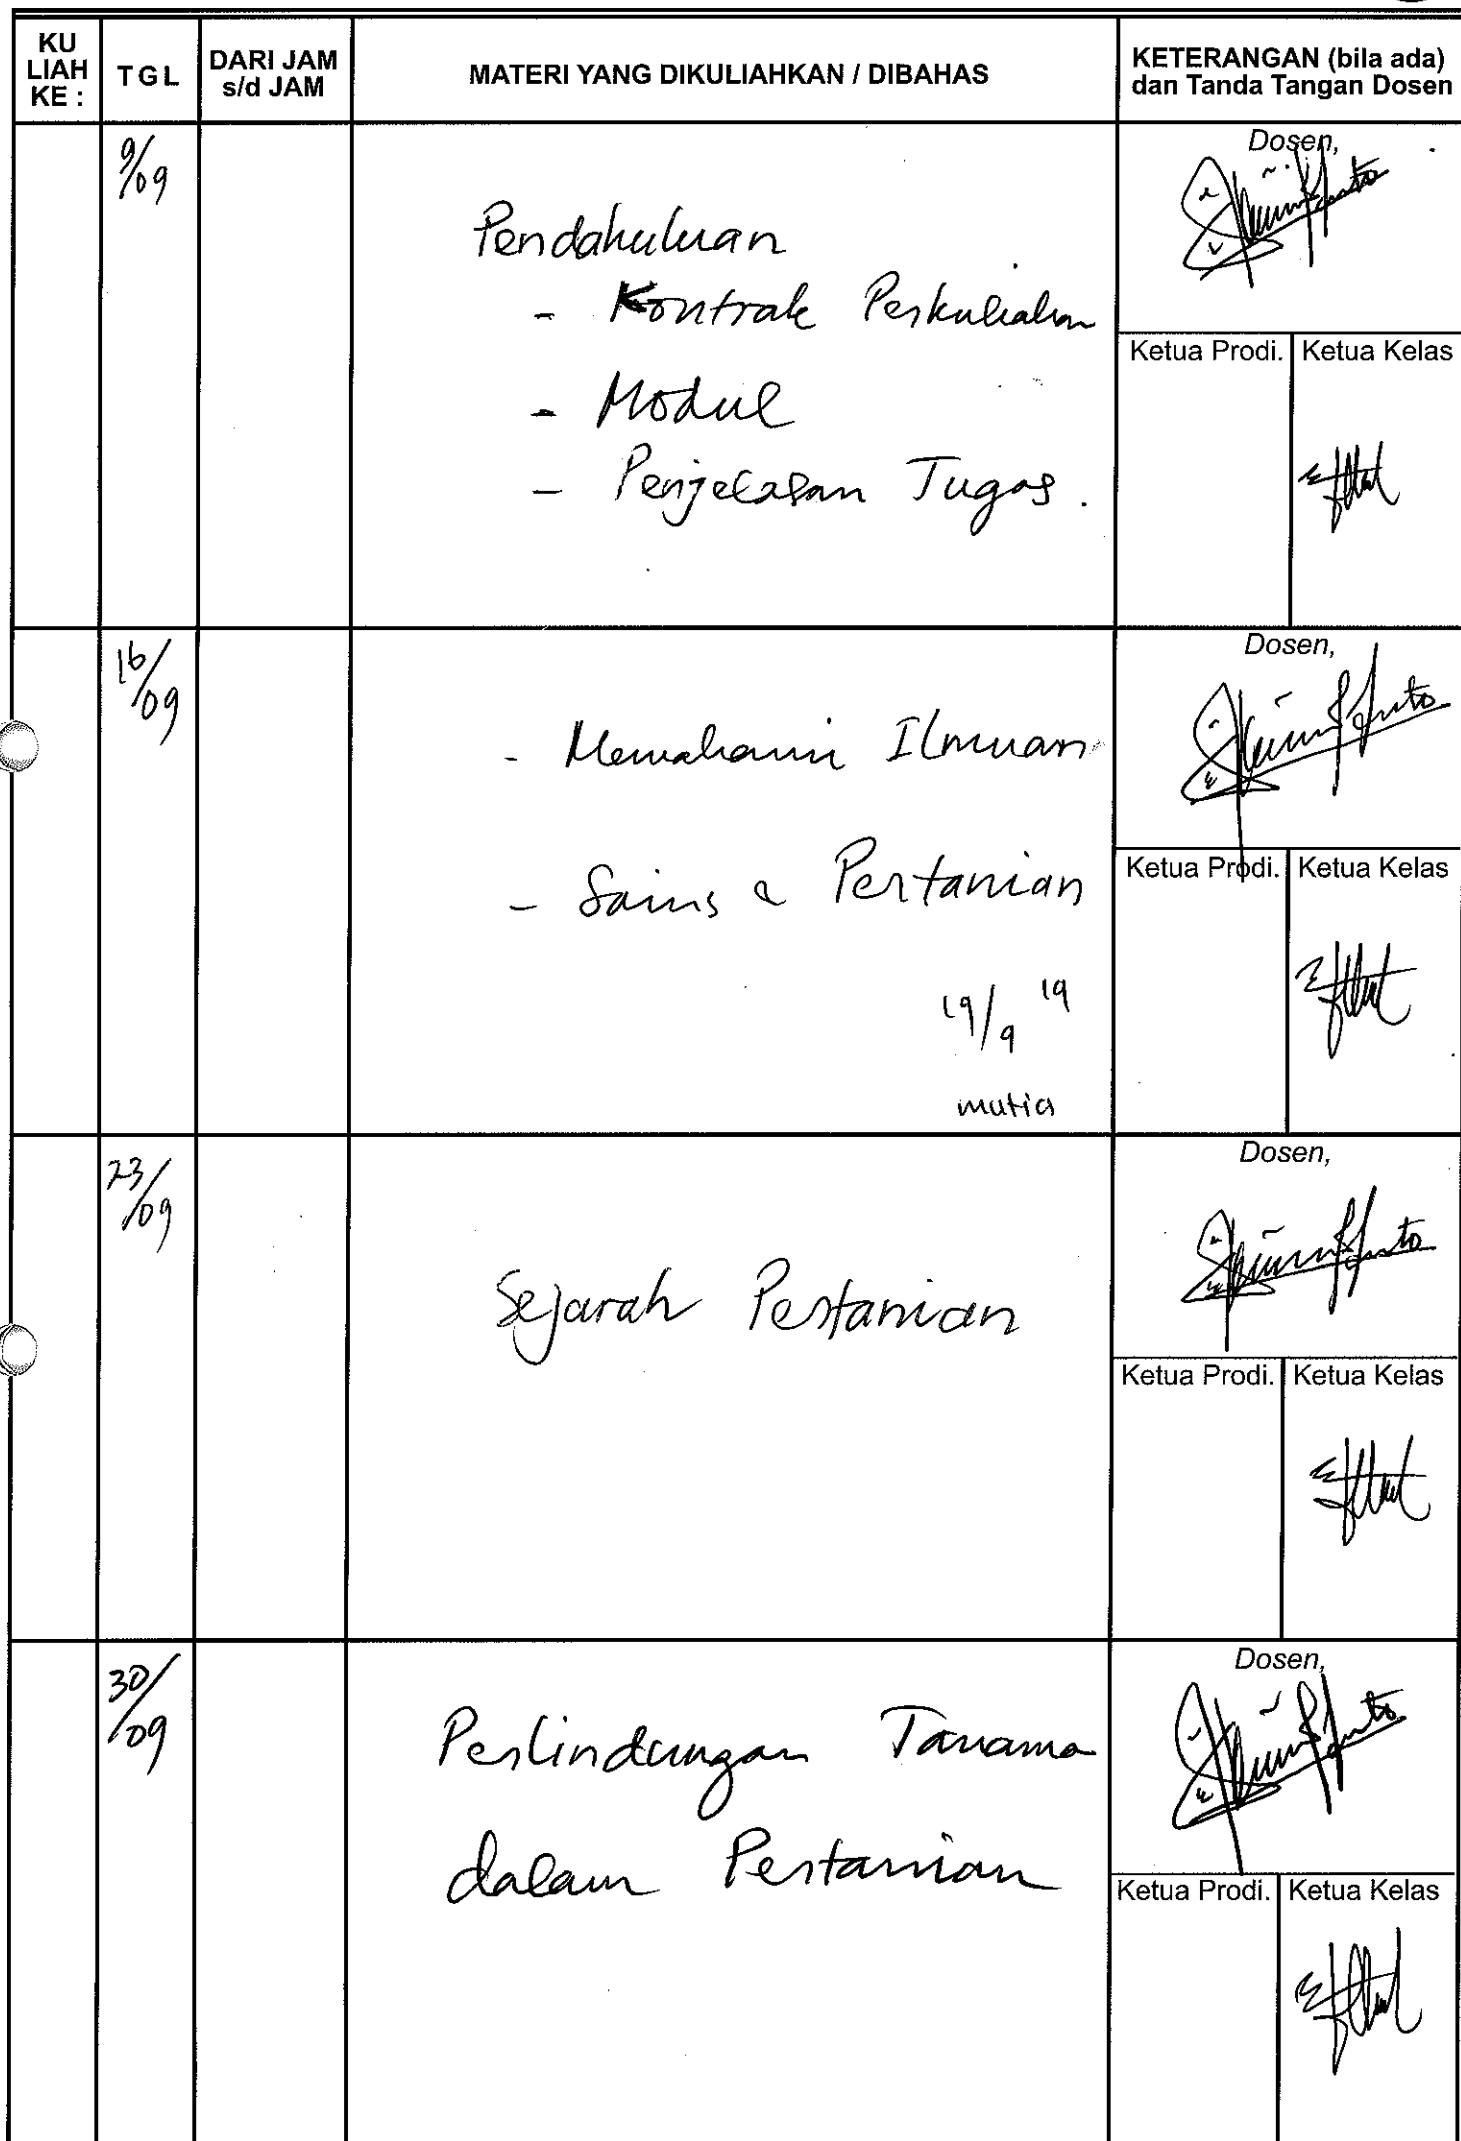 KU LIAH KE :
TGL
DARI JAM s/d JAM
MATERI YANG DIKULIAHKAN / DIBAHAS
KETERANGAN (bila ada) dan Tanda Tangan Dosen
9/09
Pendahuluan
- Kontrak Perkuliahan
- Modul
- Penjelasan Tugas.
Dosen,
Ketua Prodi.
Ketua Kelas
16/09
- Memahami Ilmuan
- Sains & Pertanian
19/9 19
mutia
Dosen,
Ketua Prodi.
Ketua Kelas
23/09
Sejarah Pertanian
Dosen,
Ketua Prodi.
Ketua Kelas
30/09
Perlindungan Tanama
dalam Pertanian
Dosen,
Ketua Prodi.
Ketua Kelas